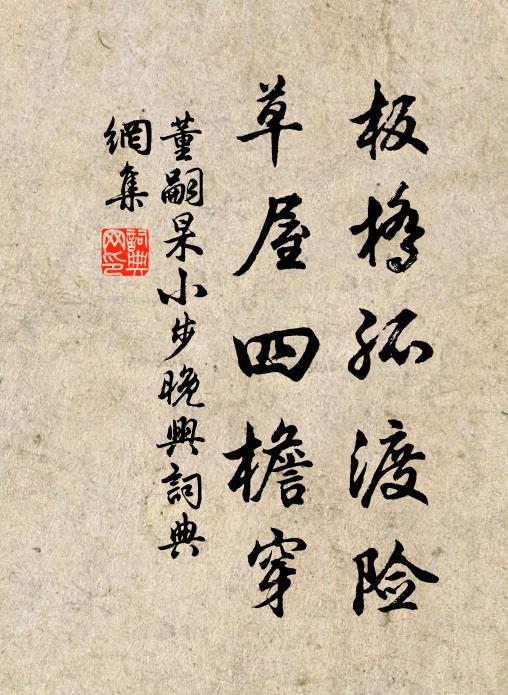 板橋孤渡险
草屋四檐穿
董嗣杲小步晚興詞典
網集
詞典
网印